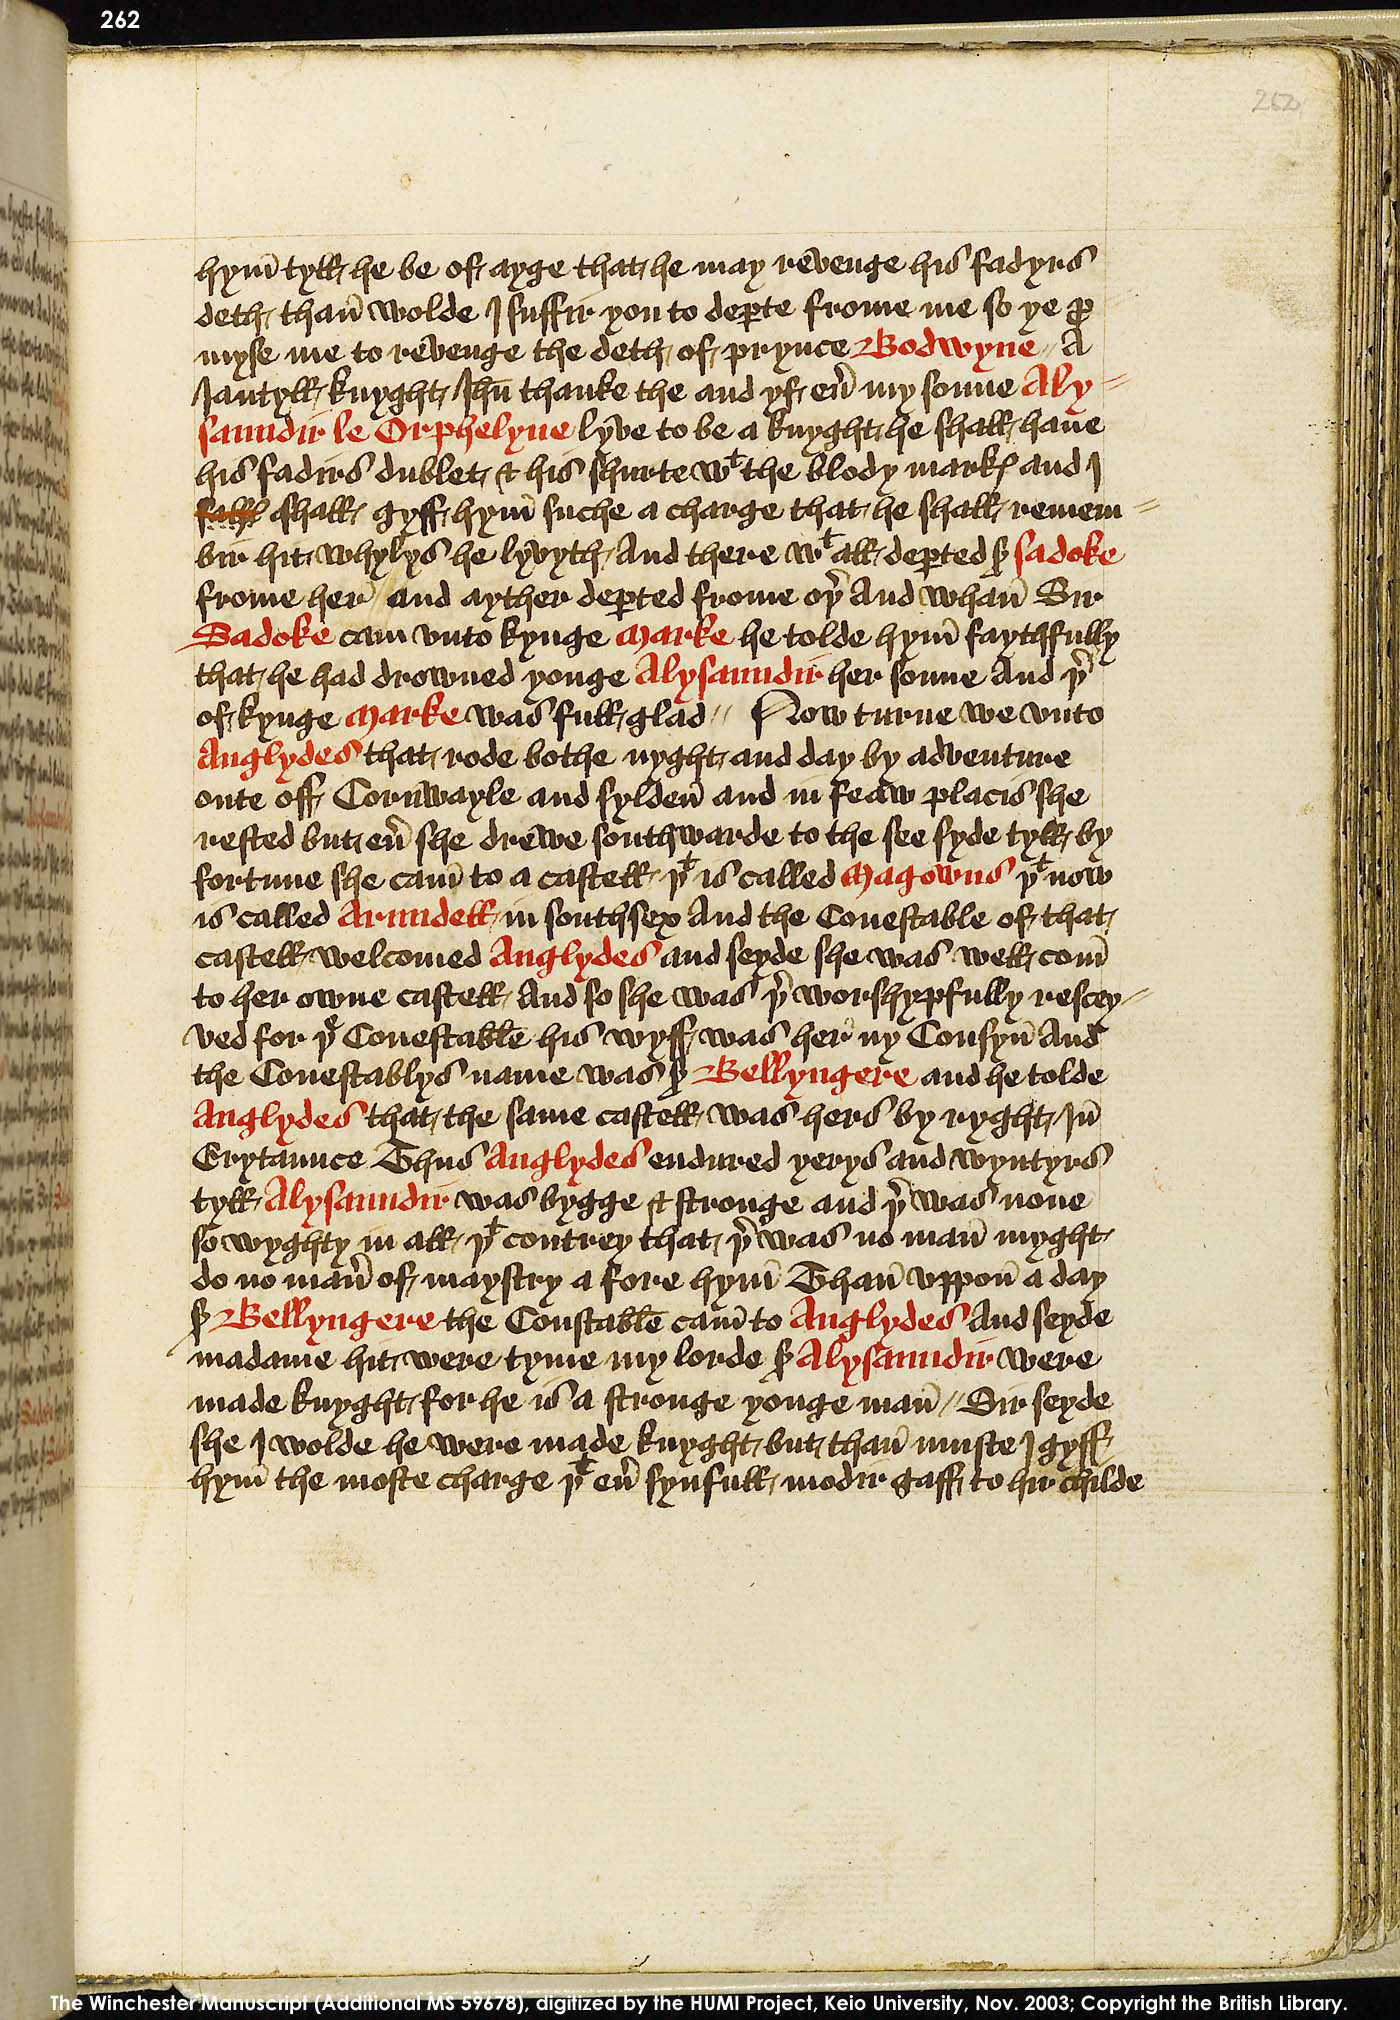 262
262
hym̄ tyll he be of ayge that he may revenge his fadyrs
deth, than̄ wolde I suffir you to dep̱te frome me so ye ꝓ
myse me to revenge the deth of prynce Bodwyne // A
Jantyll knyght Ihū thanke the and yf eu̾ my sonne Aly //
saundir le Orphelyne lyve to be a knyght he shall haue
his fadirs dublet & his shurte wᵗ the blody markꝭ and I
shall gyff hym̄ suche a charge that he shall remem //
bir hit whylys he lyvyth / And there wᵗ all dep̱ted sꝰ Sadoke
frome her̄ / and ayther dep̱ted frome oþ̾ And whan̄ Sir
Sadoke cam vnto kynge Marke he tolde hym̄ faythfully
that he had drowned yonge Alysaundir her sonne And þ̾
of kynge Marke was full glad // Now turne we vnto
Anglydes that rode bothe nyght and day by adventure
oute off Cornwayle and fylden̄ and in feaw placis she
rested but eu̾ she drewe southwarde to the see syde tyll by
fortune she cam̄ to a castell þᵗ is called Magowns þᵗ now
is called Arundell in southsex And the Conestable of that
castell welcomed Anglydes and seyde she was well com̄
to her owne castell And so she was þ̾ worshypfully rescey //
ved for þᵉ Conestable his wyff was her̄ ny Cousyn̄ And
the Conestablys name was sꝰ Bellyngere and he tolde
Anglydes that the same castell was hers by ryght In̄
Erytaunce Thus Anglydes endured yerys and wyntyrs
tyll Alysaundir was bygge & stronge and þ̾ was none
so wyghty in all þᵗ contrey that þ̾ was no man̄ myght
do no man̾ of maystry a fore hym̄ Than̄ vppon̄ a day
sꝰ Bellyngere the Constable cam̄ to Anglydes And seyde
madame hit were tyme my lorde sꝰ Alysaundir were
made knyght for he is a stronge yonge man̄ // Sir seyde
she I wolde he were made knyght but than̄ muste I gyff
hym̄ the moste charge þᵗ eu̾ synfull modir gaff to hir childe
The Winchester Manuscript (Additional MS 59678), digitized by the HUMI Project, Keio University, Nov. 2003; Copyright the British Library.